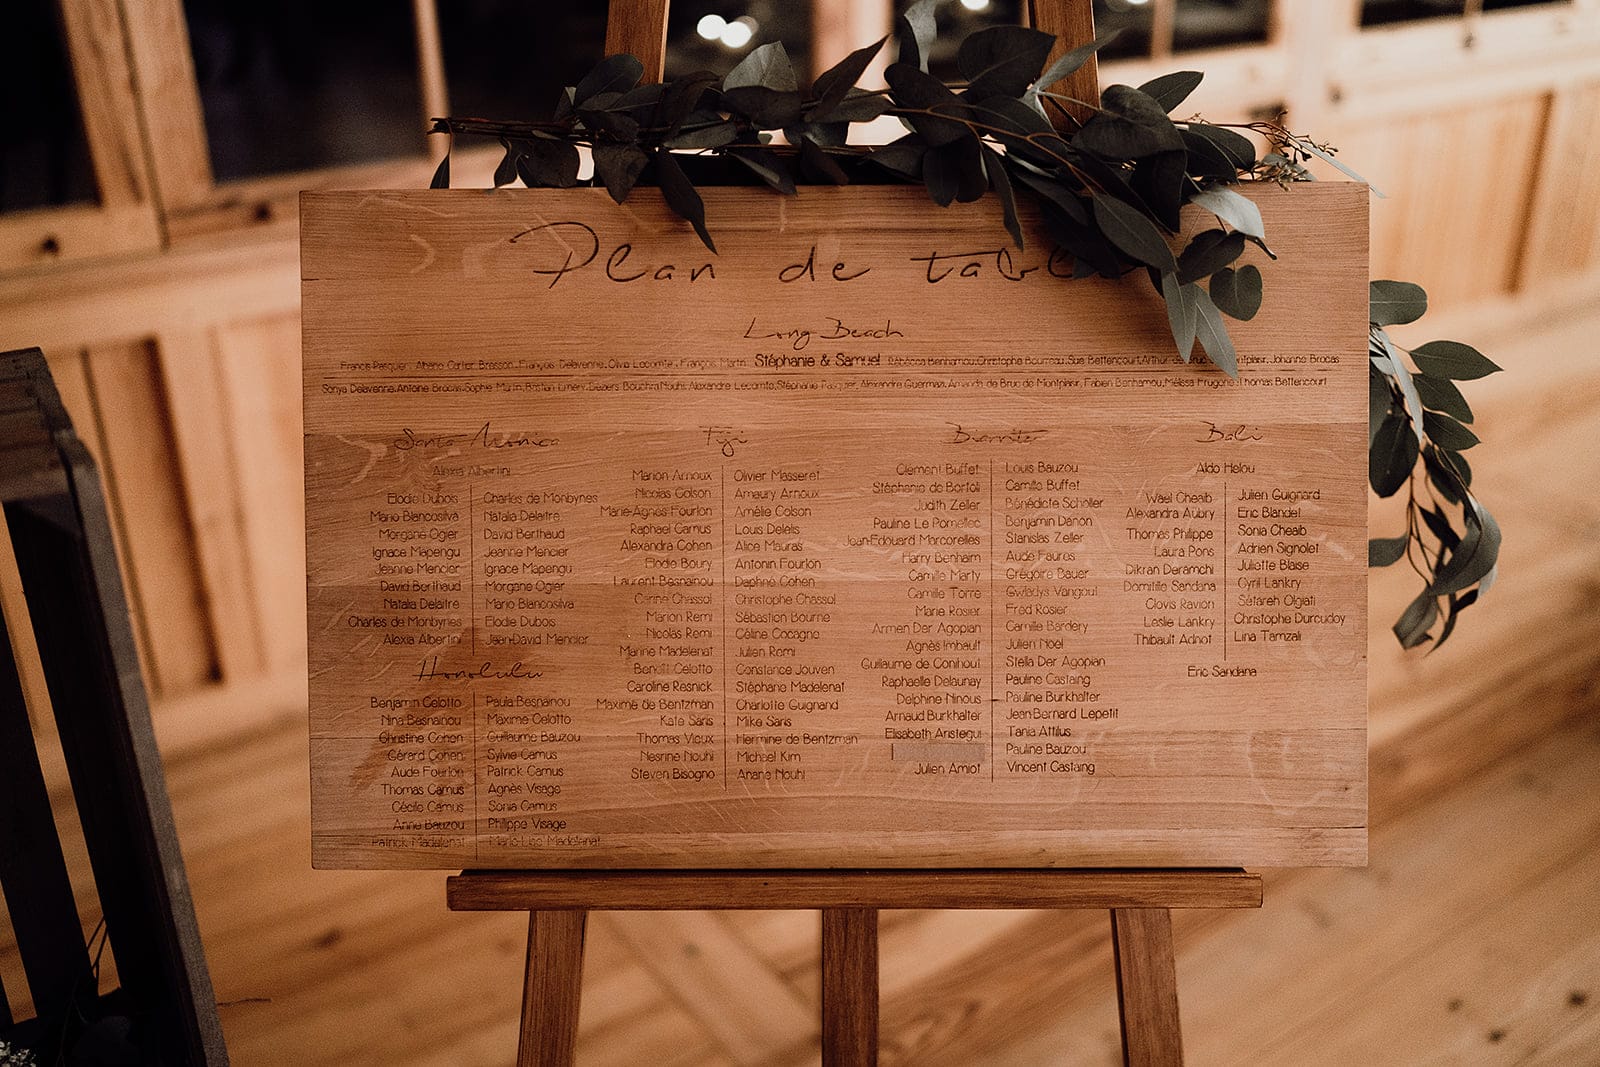 Plan de table
Long Beach
Francis Pasquer, Albane Cartier Bresson, François Delavenne, Olivia Lecomte, François Martin, Stéphanie & Samuel Rébécca Benhamou, Christophe Bourreau, Sue Bettencourt, Arthur de Bruc de Montplaisir, Johanna Brocas
Sonya Delavenne, Antoine Brocas, Sophie Martin, Bastian Emery, Béziers Bouchra Nouhi, Alexandre Lecomte, Stéphanie Pasquer, Alexandra Guermaz, Amanda de Bruc de Montplaisir, Fabien Benhamou, Mélissa Frugone, Thomas Bettencourt
Santa Monica
Alexia Albertini
Elodie Dubois Charles de Monbynes
Mario Blancosilva Natalia Delaitre
Morgane Ogier David Berthaud
Ignace Mapengu Jeanne Mencier
Jeanne Mencier Ignace Mapengu
David Berthaud Morgane Ogier
Natalia Delaitre Mario Blancosilva
Charles de Monbynes Elodie Dubois
Alexia Albertini Jean-David Mencier
Honolulu
Benjamin Celotto Paula Besnainou
Nina Besnainou Maxime Celotto
Christine Cohen Guillaume Bauzou
Gérard Cohen Sylvie Camus
Aude Fourlon Patrick Camus
Thomas Camus Agnès Visage
Cécile Camus Sonia Camus
Anne Bauzou Philippe Visage
Patrick Madelenat Marie-Lise Madelenat
Fiji
Marion Arnoux Olivier Masseret
Nicolas Colson Amaury Arnoux
Marie-Agnès Fourlon Amélie Colson
Raphael Camus Louis Delelis
Alexandra Cohen Alice Mauras
Elodie Boury Antonin Fourlon
Laurent Besnainou Daphné Cohen
Carine Chassol Christophe Chassol
Marion Remi Sébastien Bourne
Nicolas Remi Céline Cocagne
Marine Madelenat Julien Remi
Benoit Celotto Constance Jouven
Caroline Resnick Stéphane Madelenat
Maxime de Bentzman Charlotte Guignard
Kate Saris Mike Saris
Thomas Vieux Hermine de Bentzman
Nesrine Nouhi Michael Kim
Steven Bisogno Ariane Nouhi
Biarritz
Clément Buffet Louis Bauzou
Stéphanie de Bortoli Camille Buffet
Judith Zeller Bénédicte Scholler
Pauline Le Pomellec Benjamin Danon
Jean-Edouard Marcorelles Stanislas Zeller
Harry Benham Aude Faures
Camille Marty Grégoire Bauer
Camille Torre Gwladys Vangout
Marie Rosier Fred Rosier
Armen Der Agopian Camille Bardery
Agnès Imbault Julien Noel
Guillaume de Conihout Stella Der Agopian
Raphaelle Delaunay Pauline Castaing
Delphine Ninous Pauline Burkhalter
Arnaud Burkhalter Jean-Bernard Lepetit
Elisabeth Aristegui Tania Attilus
Pauline Bauzou
Julien Amiot Vincent Castaing
Bali
Aldo Helou
Wael Cheaib Julien Guignard
Alexandra Aubry Eric Blandet
Thomas Philippe Sonia Cheaib
Laura Pons Adrien Signolet
Dikran Deramchi Juliette Blaise
Domitille Sandana Cyril Lankry
Clovis Ravion Sétareh Olgiati
Leslie Lankry Christophe Durcudoy
Thibault Adnot Lina Tamzali
Eric Sandana